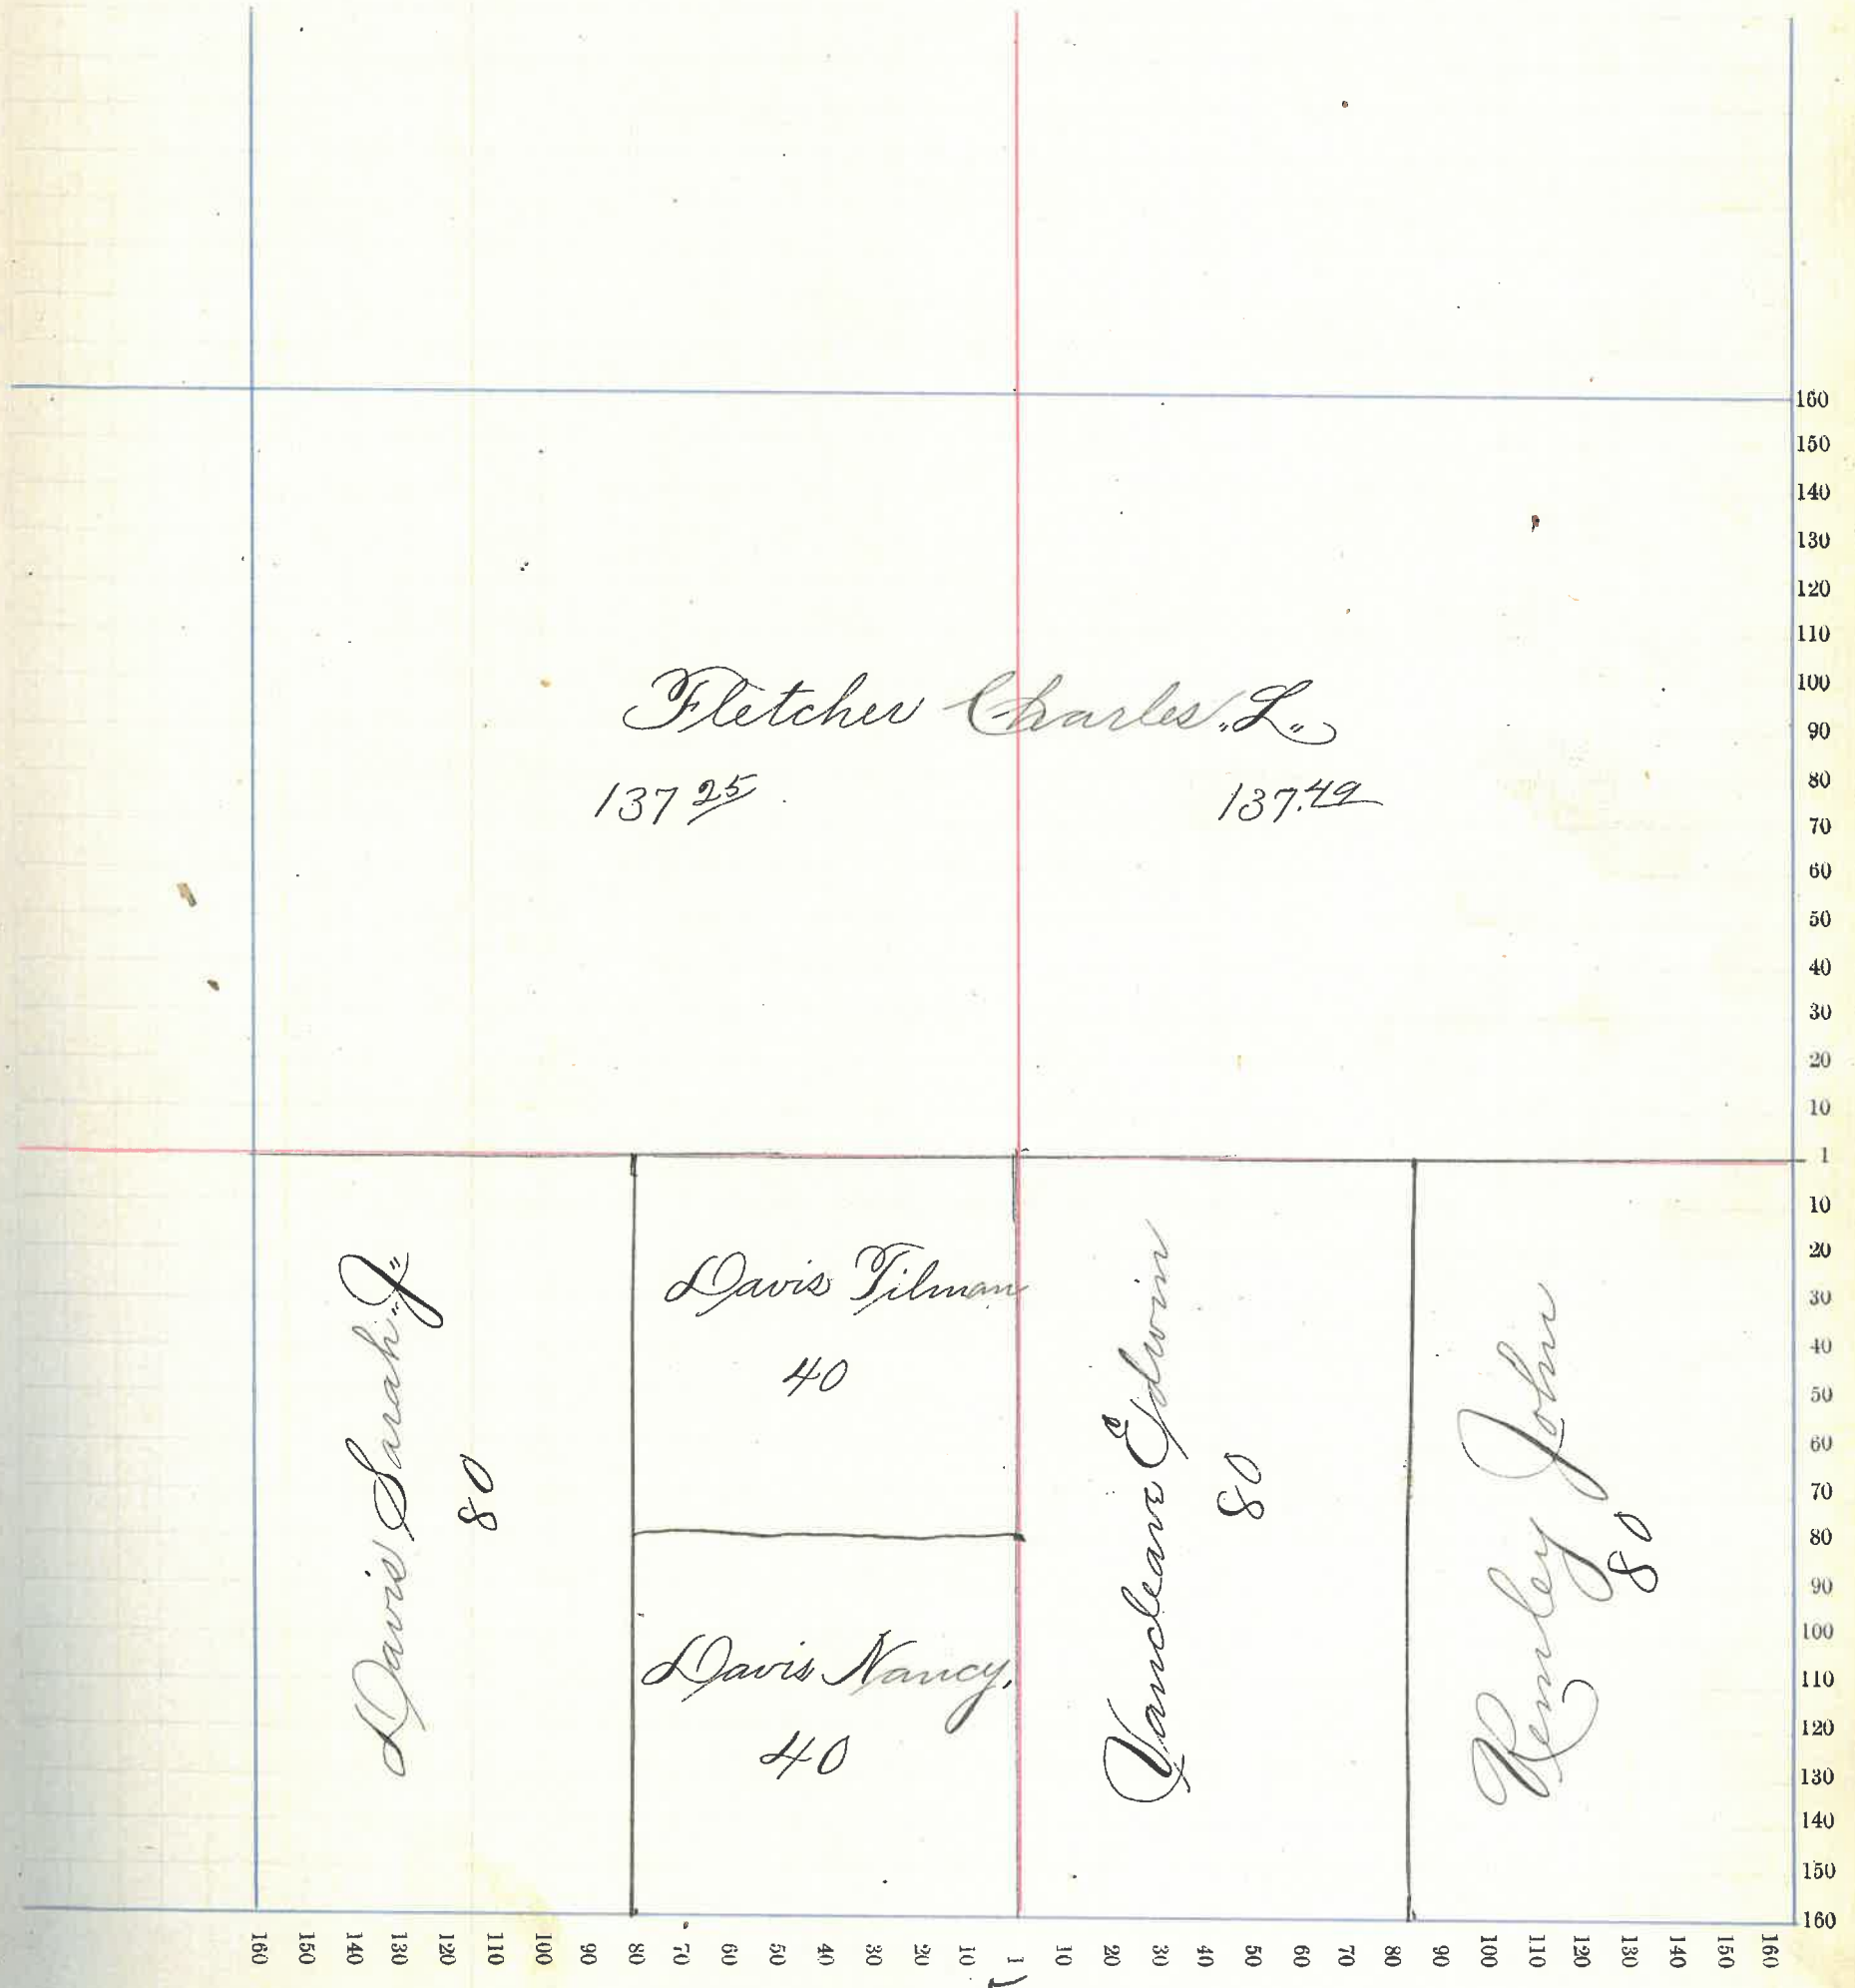 Fletcher Charles "L"
137 25
137.49
Davis Sarah "J"
80
Davis Tilman
40
Davis Nancy.
40
Vancleave Edwin
80
Remley John
80
160
150
140
130
120
110
100
90
80
70
60
50
40
30
20
10
1
10
20
30
40
50
60
70
80
90
100
110
120
130
140
150
160
160 150 140 130 120 110 100 90 80 70 60 50 40 30 20 10 1 10 20 30 40 50 60 70 80 90 100 110 120 130 140 150 160